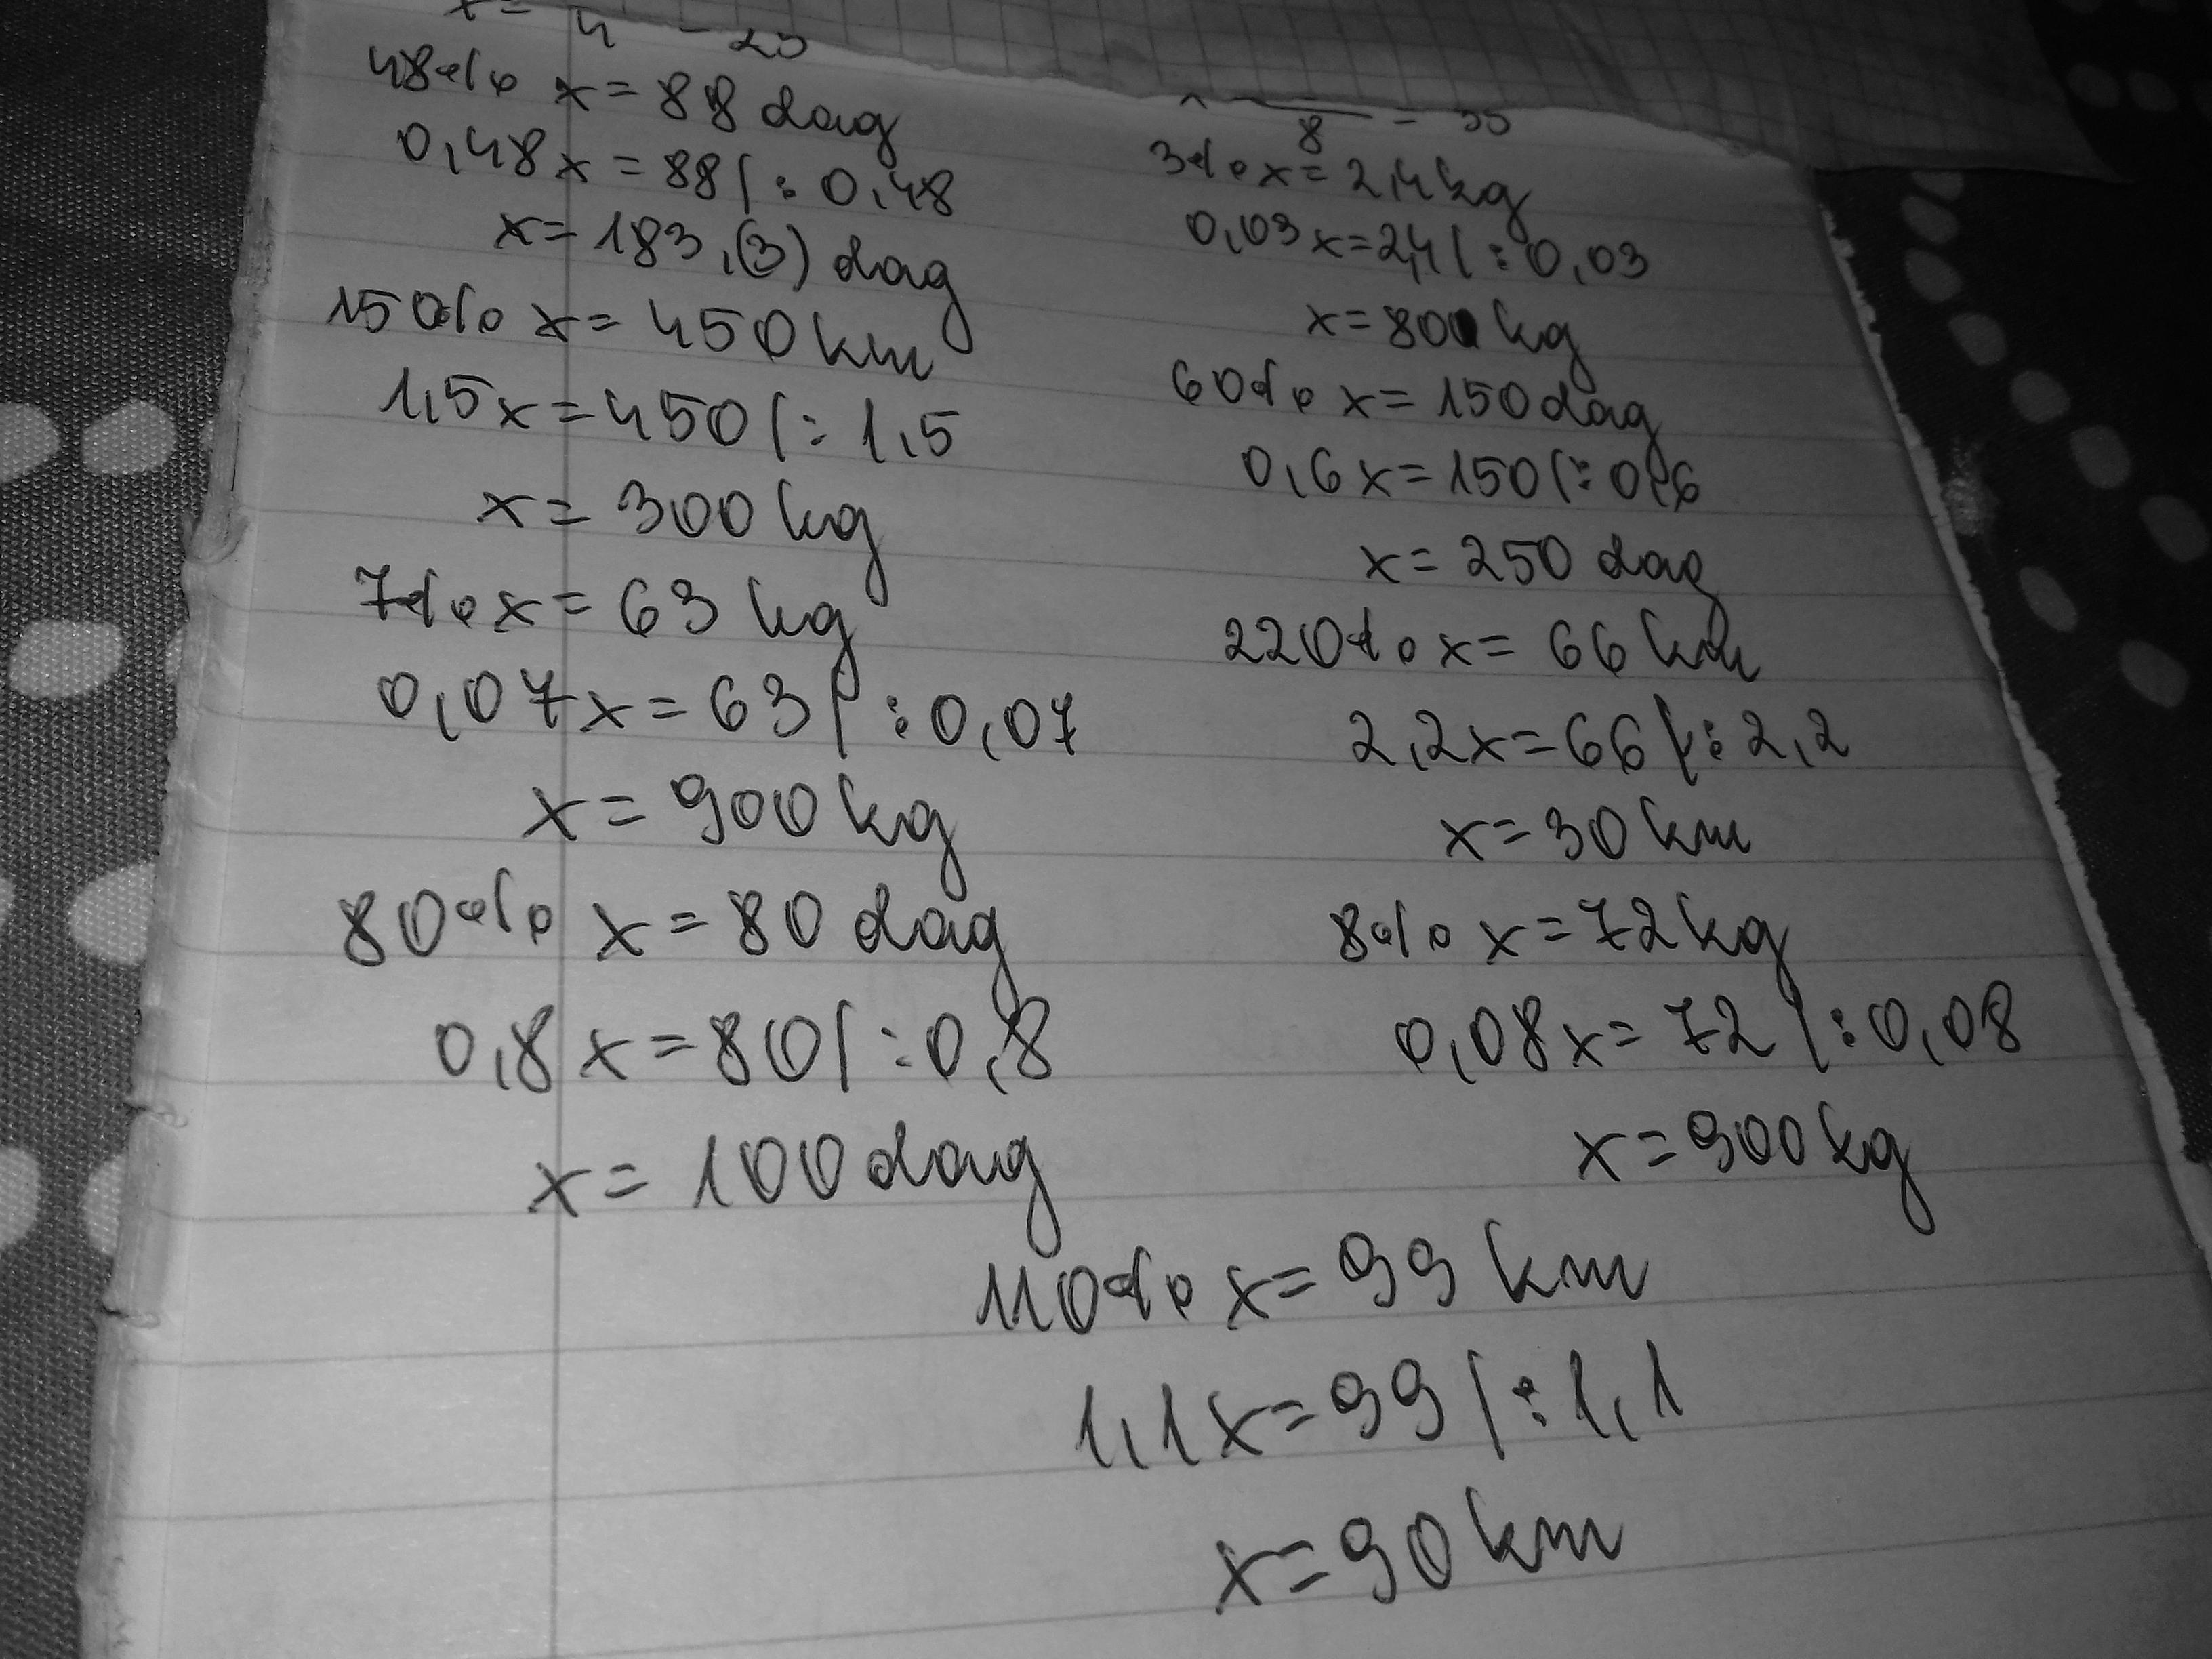 x = 4 = 25
48% x = 88 dag
0,48x = 88 / : 0,48
x = 183,(3) dag
150% x = 450 km
1,5x = 450 / : 1,5
x = 300 kg
7% x = 63 kg
0,07x = 63 / : 0,07
x = 900 kg
80% x = 80 dag
0,8x = 80 / : 0,8
x = 100 dag
8 = 35
3% x = 2,4 kg
0,03x = 2,4 / : 0,03
x = 800 kg
60% x = 150 dag
0,6x = 150 / : 0,6
x = 250 dag
220% x = 66 km
2,2x = 66 / : 2,2
x = 30 km
8% x = 72 kg
0,08x = 72 / : 0,08
x = 900 kg
110% x = 99 km
1,1x = 99 / : 1,1
x = 90 km